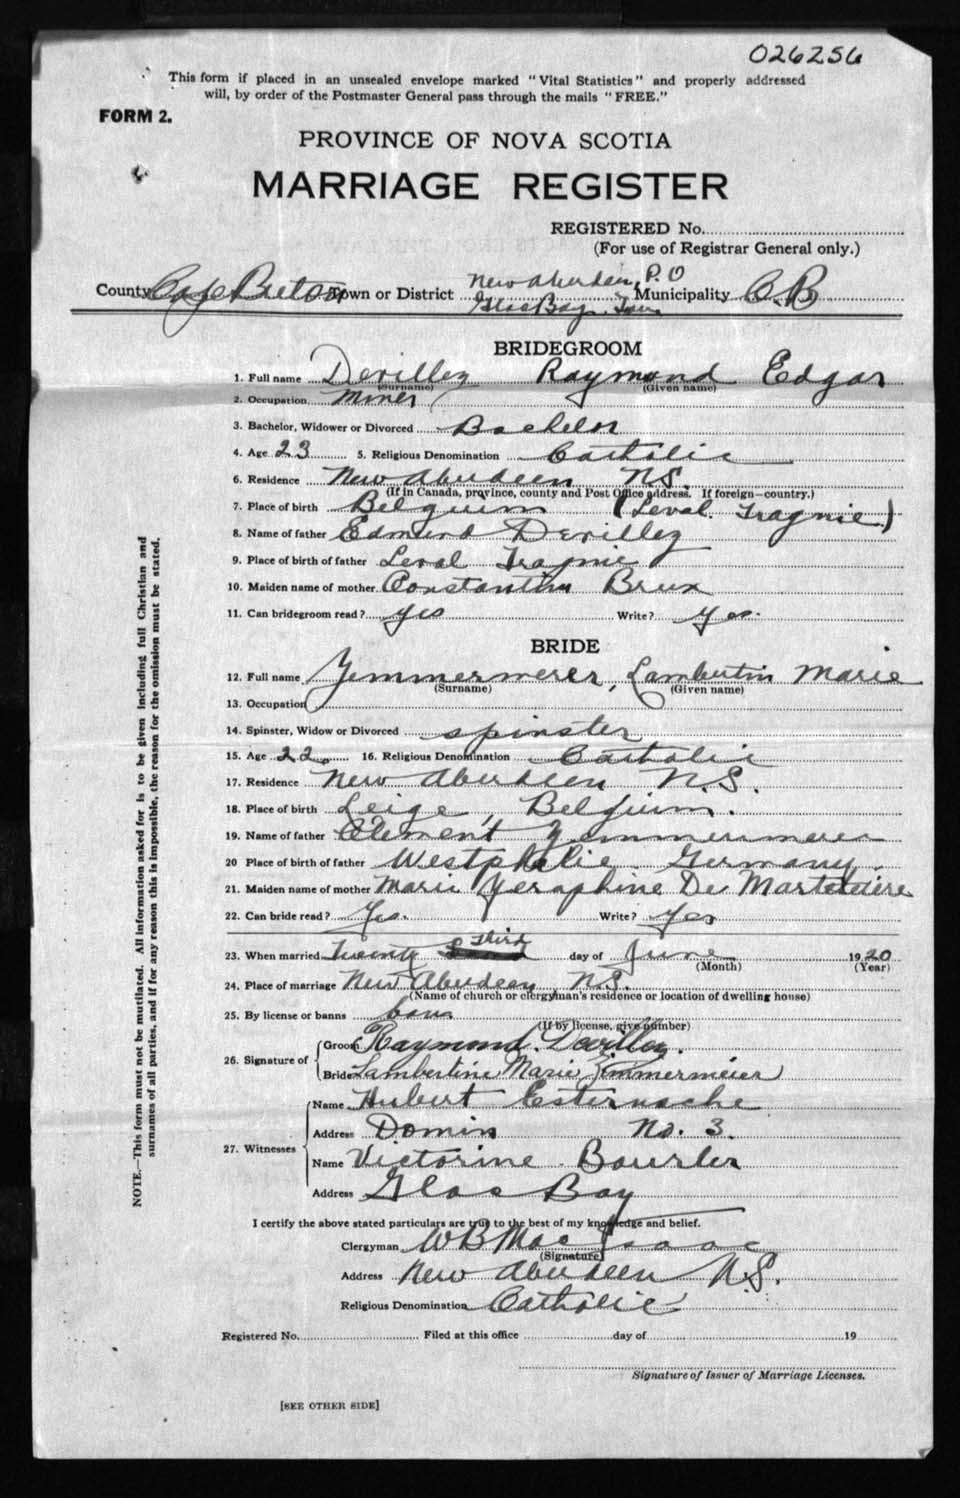 026256
This form if placed in an unsealed envelope marked "Vital Statistics" and properly addressed
will, by order of the Postmaster General pass through the mails "FREE."
FORM 2.
PROVINCE OF NOVA SCOTIA
MARRIAGE REGISTER
REGISTERED No.
(For use of Registrar General only.)
New Aberdein, P.O
County Cape Breton Town or District Glace Bay. Town Municipality C.B
BRIDEGROOM
1. Full name Devillez Raymond Edgar
(Surname) (Given name)
2. Occupation Miner
3. Bachelor, Widower or Divorced Bachelor
4. Age 23 5. Religious Denomination Catholic
6. Residence New Aberdeen N.S.
(If in Canada, province, county and Post Office address. If foreign—country.)
7. Place of birth Belguim (Leval Tragnie)
8. Name of father Edmund Devillez
9. Place of birth of father Leval Tragnie
10. Maiden name of mother Constantin Brux
11. Can bridegroom read? yes Write? yes.
BRIDE
12. Full name Zemmermerer, Lambertin Marie
(Surname) (Given name)
13. Occupation
14. Spinster, Widow or Divorced spinster
15. Age 22. 16. Religious Denomination Catholic
17. Residence New Aberdeen N.S.
18. Place of birth Leige, Belgium.
19. Name of father Clement Zemmermerer
20 Place of birth of father Westphalie Germany.
21. Maiden name of mother Marie Zeraphine De
22. Can bride read? Yes. Write? Yes
23. When married Twenty third day of June 1920
(Month) (Year)
24. Place of marriage New Aberdeen N.S.
(Name of church or clergyman's residence or location of dwelling house)
25. By license or banns bans
(If by license, give number)
26. Signature of
Groom Raymond Devillez.
Bride Lambertine Marie Zimmermeier
27. Witnesses
Name Hubert Esternache
Address Domin No. 3.
Name Victorine Bourler
Address Glace Bay
I certify the above stated particulars are true to the best of my knowledge and belief.
Clergyman W B MacIsaac
(Signature)
Address New Aberdeen N.S.
Religious Denomination Catholic
Registered No. Filed at this office day of 19
Signature of Issuer of Marriage Licenses.
[SEE OTHER SIDE]
NOTE.—This form must not be mutilated. All information asked for is to be given including full Christian and
surnames of all parties, and if for any reason this is impossible, the reason for the omission must be stated.